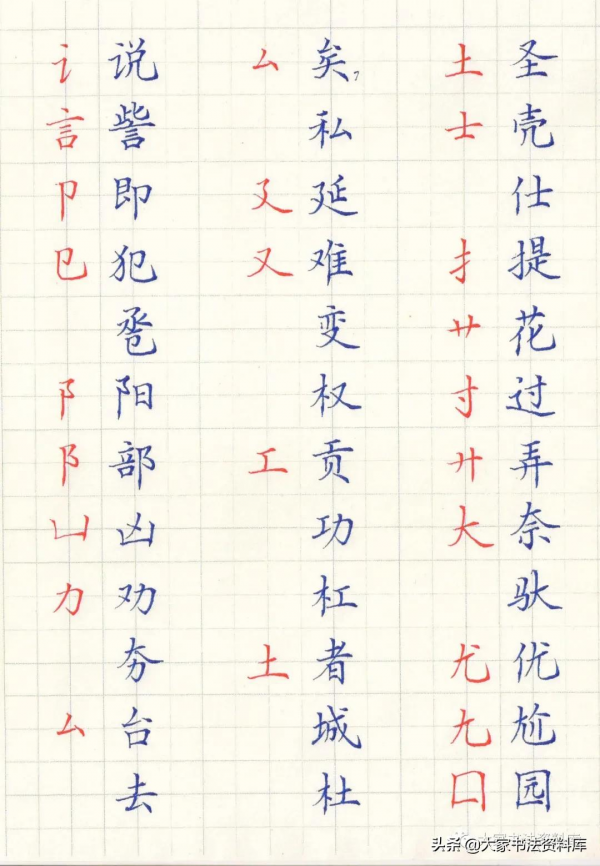 讠 说
言 訾
卩 即
㔾 犯
卺
阝 阳
阝 部
凵 凶
力 劝
夯
厶 台
去
厶 矣,
私
廴 延
又 难
变
权
工 贡
功
杠
土 者
城
杜
土 圣
士 壳
仕
扌 提
艹 花
寸 过
廾 弄
大 奈
驮
尤 优
九 尴
囗 园
大家书法资料库
头条@大家书法资料库